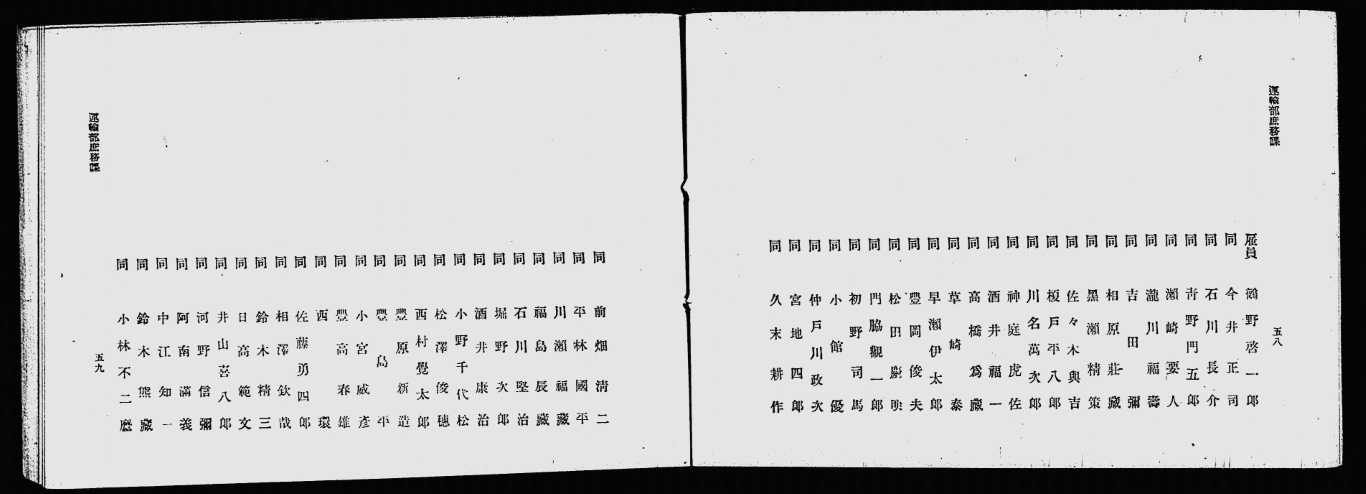 運輸部庶務課
五八
雇員 鵜野啓一郎
同 今井正司
同 石川長介
同 青野門五郎
同 瀬崎要人
同 瀧川福壽
同 吉田彌
同 相原莊藏
同 黑瀬精策
同 佐々木與吉
同 榎戸平八郎
同 川名萬次郎
同 神庭虎佐
同 酒井福一
同 高橋爲藏
同 草崎泰
同 早瀬伊太郎
同 豊岡俊夫
同 松田慶暎
同 門脇觀一郎
同 初野司馬
同 小館優
同 仲戸川政次
同 宮地四郎
同 久末耕作
運輸部庶務課
五九
同 前畑清二
同 平林國平
同 川瀬福藏
同 福島辰藏
同 石川堅治
同 堀野次郎
同 酒井康治
同 小野千代松
同 松澤俊穂
同 西村覺太郎
同 豊原新造
同 豊島平
同 小宮威彦
同 豊高春雄
同 西環
同 佐藤勇四郎
同 相澤欽哉
同 鈴木精三
同 日高範文
同 井山喜八郎
同 河野信彌
同 阿南滿義
同 中江知一
同 鈴木熊藏
同 小林不二麿